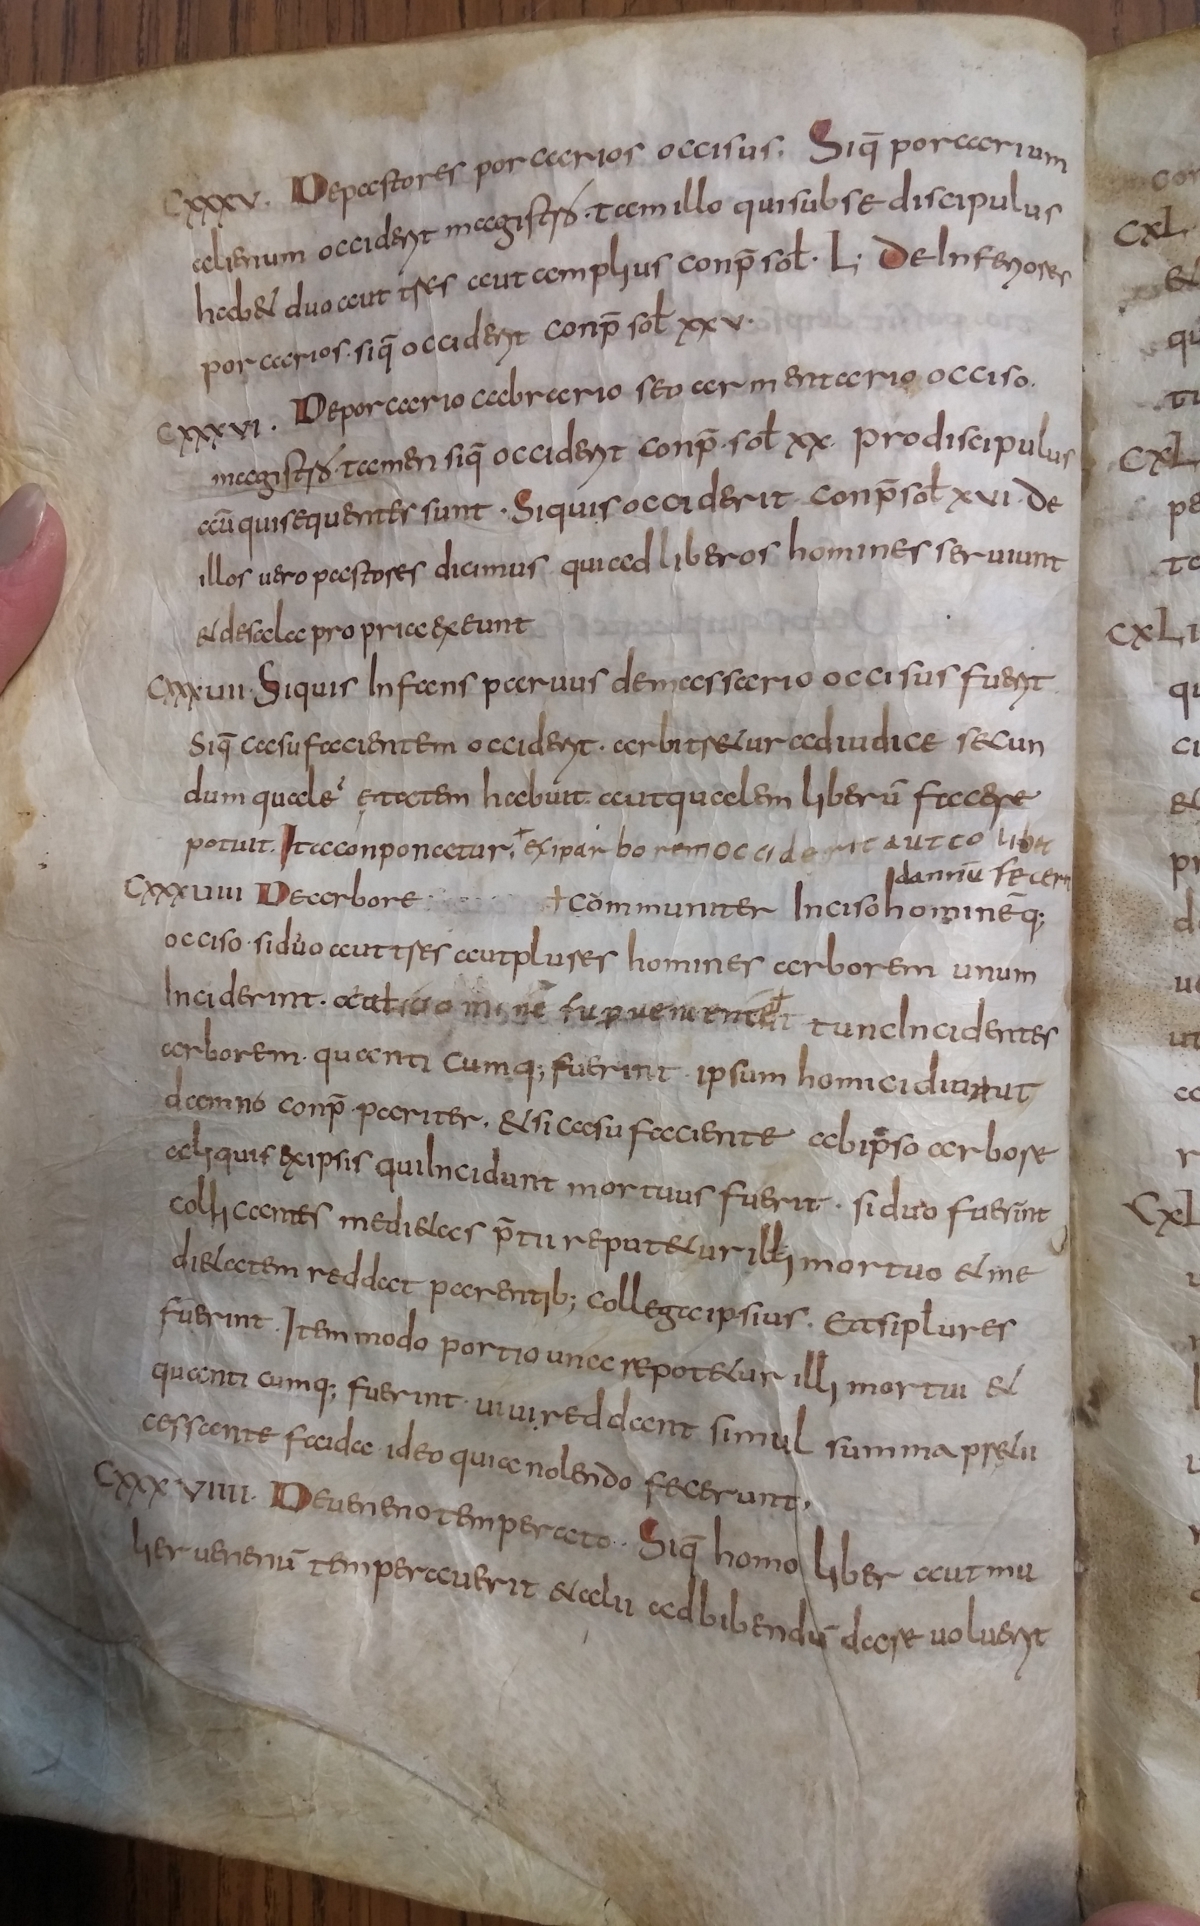 CXXXV. Depastores porcarios occisus. Siq̄ porcarium
alienum occiderit magistrū. tam illo quisubse discipulus
habet duo aut tres aut amplius conp̄ sol. L; De Inferiores
porcarios. siq̄ occiderit conp̄ sol xxv.
CXXXVI. Deporcario cabrario seo armentario occiso.
magistrū. tamen siq̄ occiderit conp̄. sol xx. Prodiscipulus
aū quisequentes sunt. Siquis occiderit conp̄ sol xvi. De
illos uero pastores dicimus quiad liberos homines seruiunt
et desala propria exeunt
CXXXVII. Siquis Infans paruus demassario occisus fuerit
Siq̄ casufacientem occiderit. arbitretur adiudice secun
dum quale etatem habuit. autqualem liberū facere
potuit. Ita conponatur. occiderit aut
damnū
CXXXVIII Dearbore Cōmuniter Inciso hominēq;
occiso. si duo aut tres aut plures homines arborem unum
Inciderint. tunc Incidentes
arborem. quanti cumq; fuerint ipsum homicidium ut
damno conp̄. pariter. et si casu faciente ab ipso arbore
aliquis exipsis qui Incidunt mortuus fuerit. si duo fuerint
colligantes medietas p̄tii reputetur illi mortuo et me
dietatem reddat parentib; collega ipsius. Et si plures
fuerint. Item modo portio una repotetur illi mortui et
quanti cumq; fuerint uiui reddant simul summa pretii
cessante faida ideo quia nolendo fecerunt.
CXXXVIIII. Deueneno temperato. Siq̄ homo liber aut mu
lier uenenū temperauerit et alii ad bibendū dare uoluerit